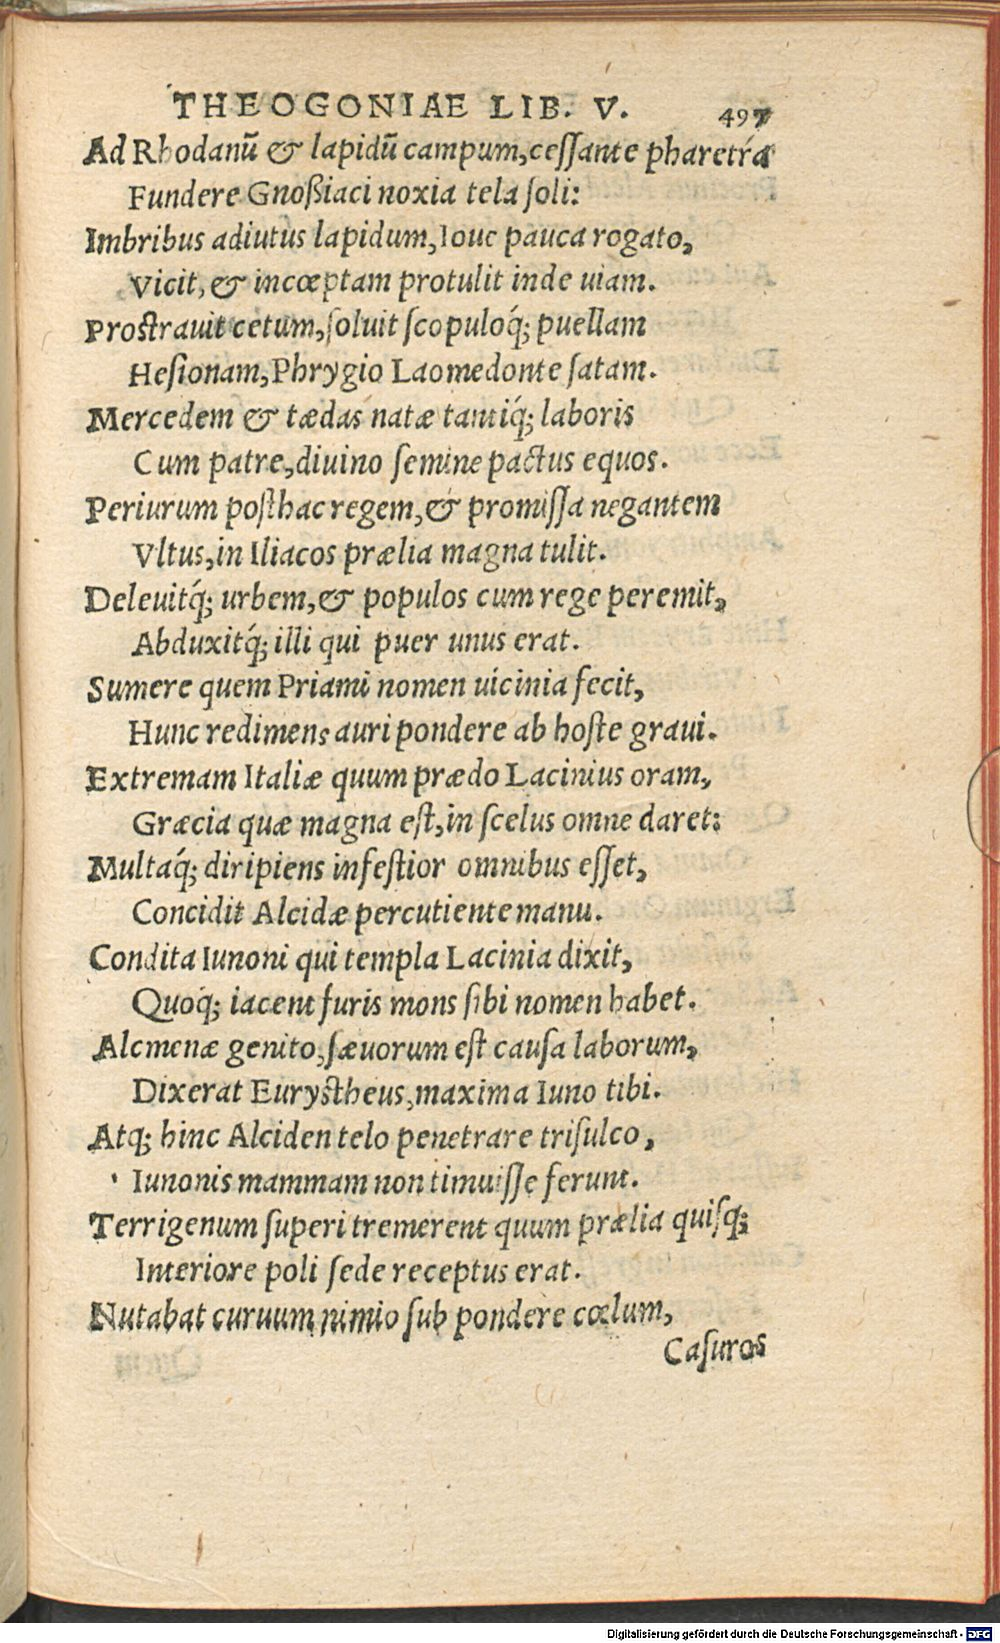 THEOGONIAE LIB. V. 497
Ad Rhodanū & lapidū campum, ceſſante pharetra
Fundere Gnoßiaci noxia tela ſoli:
Imbribus adiutus lapidum, Ioue pauca rogato,
Vicit, & incœptam protulit inde uiam.
Proſtrauit cetum, ſoluit ſcopuloq́; puellam
Heſionam, Phrygio Laomedonte ſatam.
Mercedem & tædas natæ tantiq́; laboris
Cum patre, diuino ſemine pactus equos.
Periurum poſthac regem, & promiſſa negantem
Vltus, in Iliacos prælia magna tulit.
Deleuitq́; urbem, & populos cum rege peremit,
Abduxitq́; illi qui puer unus erat.
Sumere quem Priami nomen uicinia fecit,
Hunc redimens auri pondere ab hoſte graui.
Extremam Italiæ quum prædo Lacinius oram,
Græcia quæ magna eſt, in ſcelus omne daret:
Multaq́; diripiens infeſtior omnibus eſſet,
Concidit Alcidæ percutiente manu.
Condita Iunoni qui templa Lacinia dixit,
Quoq; iacent furis mons ſibi nomen habet.
Alcmenæ genito, ſæuorum eſt cauſa laborum,
Dixerat Euryſtheus, maxima Iuno tibi.
Atq; hinc Alciden telo penetrare triſulco,
Iunonis mammam non timuiſſe ferunt.
Terrigenum ſuperi tremerent quum prælia quiſq;
Interiore poli ſede receptus erat.
Nutabat curuum nimio ſub pondere cœlum,
Caſuros
Digitalisierung gefördert durch die Deutsche Forschungsgemeinschaft - DFG